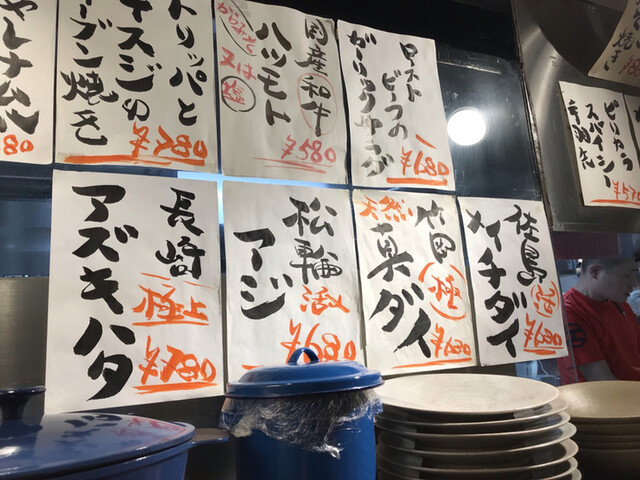 トリッパと
牛スジの
オーブン焼き
¥780
国産和牛
ハツモト
からみそ
又は
塩
¥580
ロースト
ビーフの
ガーリックサラダ
¥680
ピリカラ
スパイシー
手羽先
¥570
長崎
極上
アズキハタ
¥780
松輪
活〆
アジ
¥680
天然
真ダイ
極
¥680
佐島
活
メイチダイ
¥680